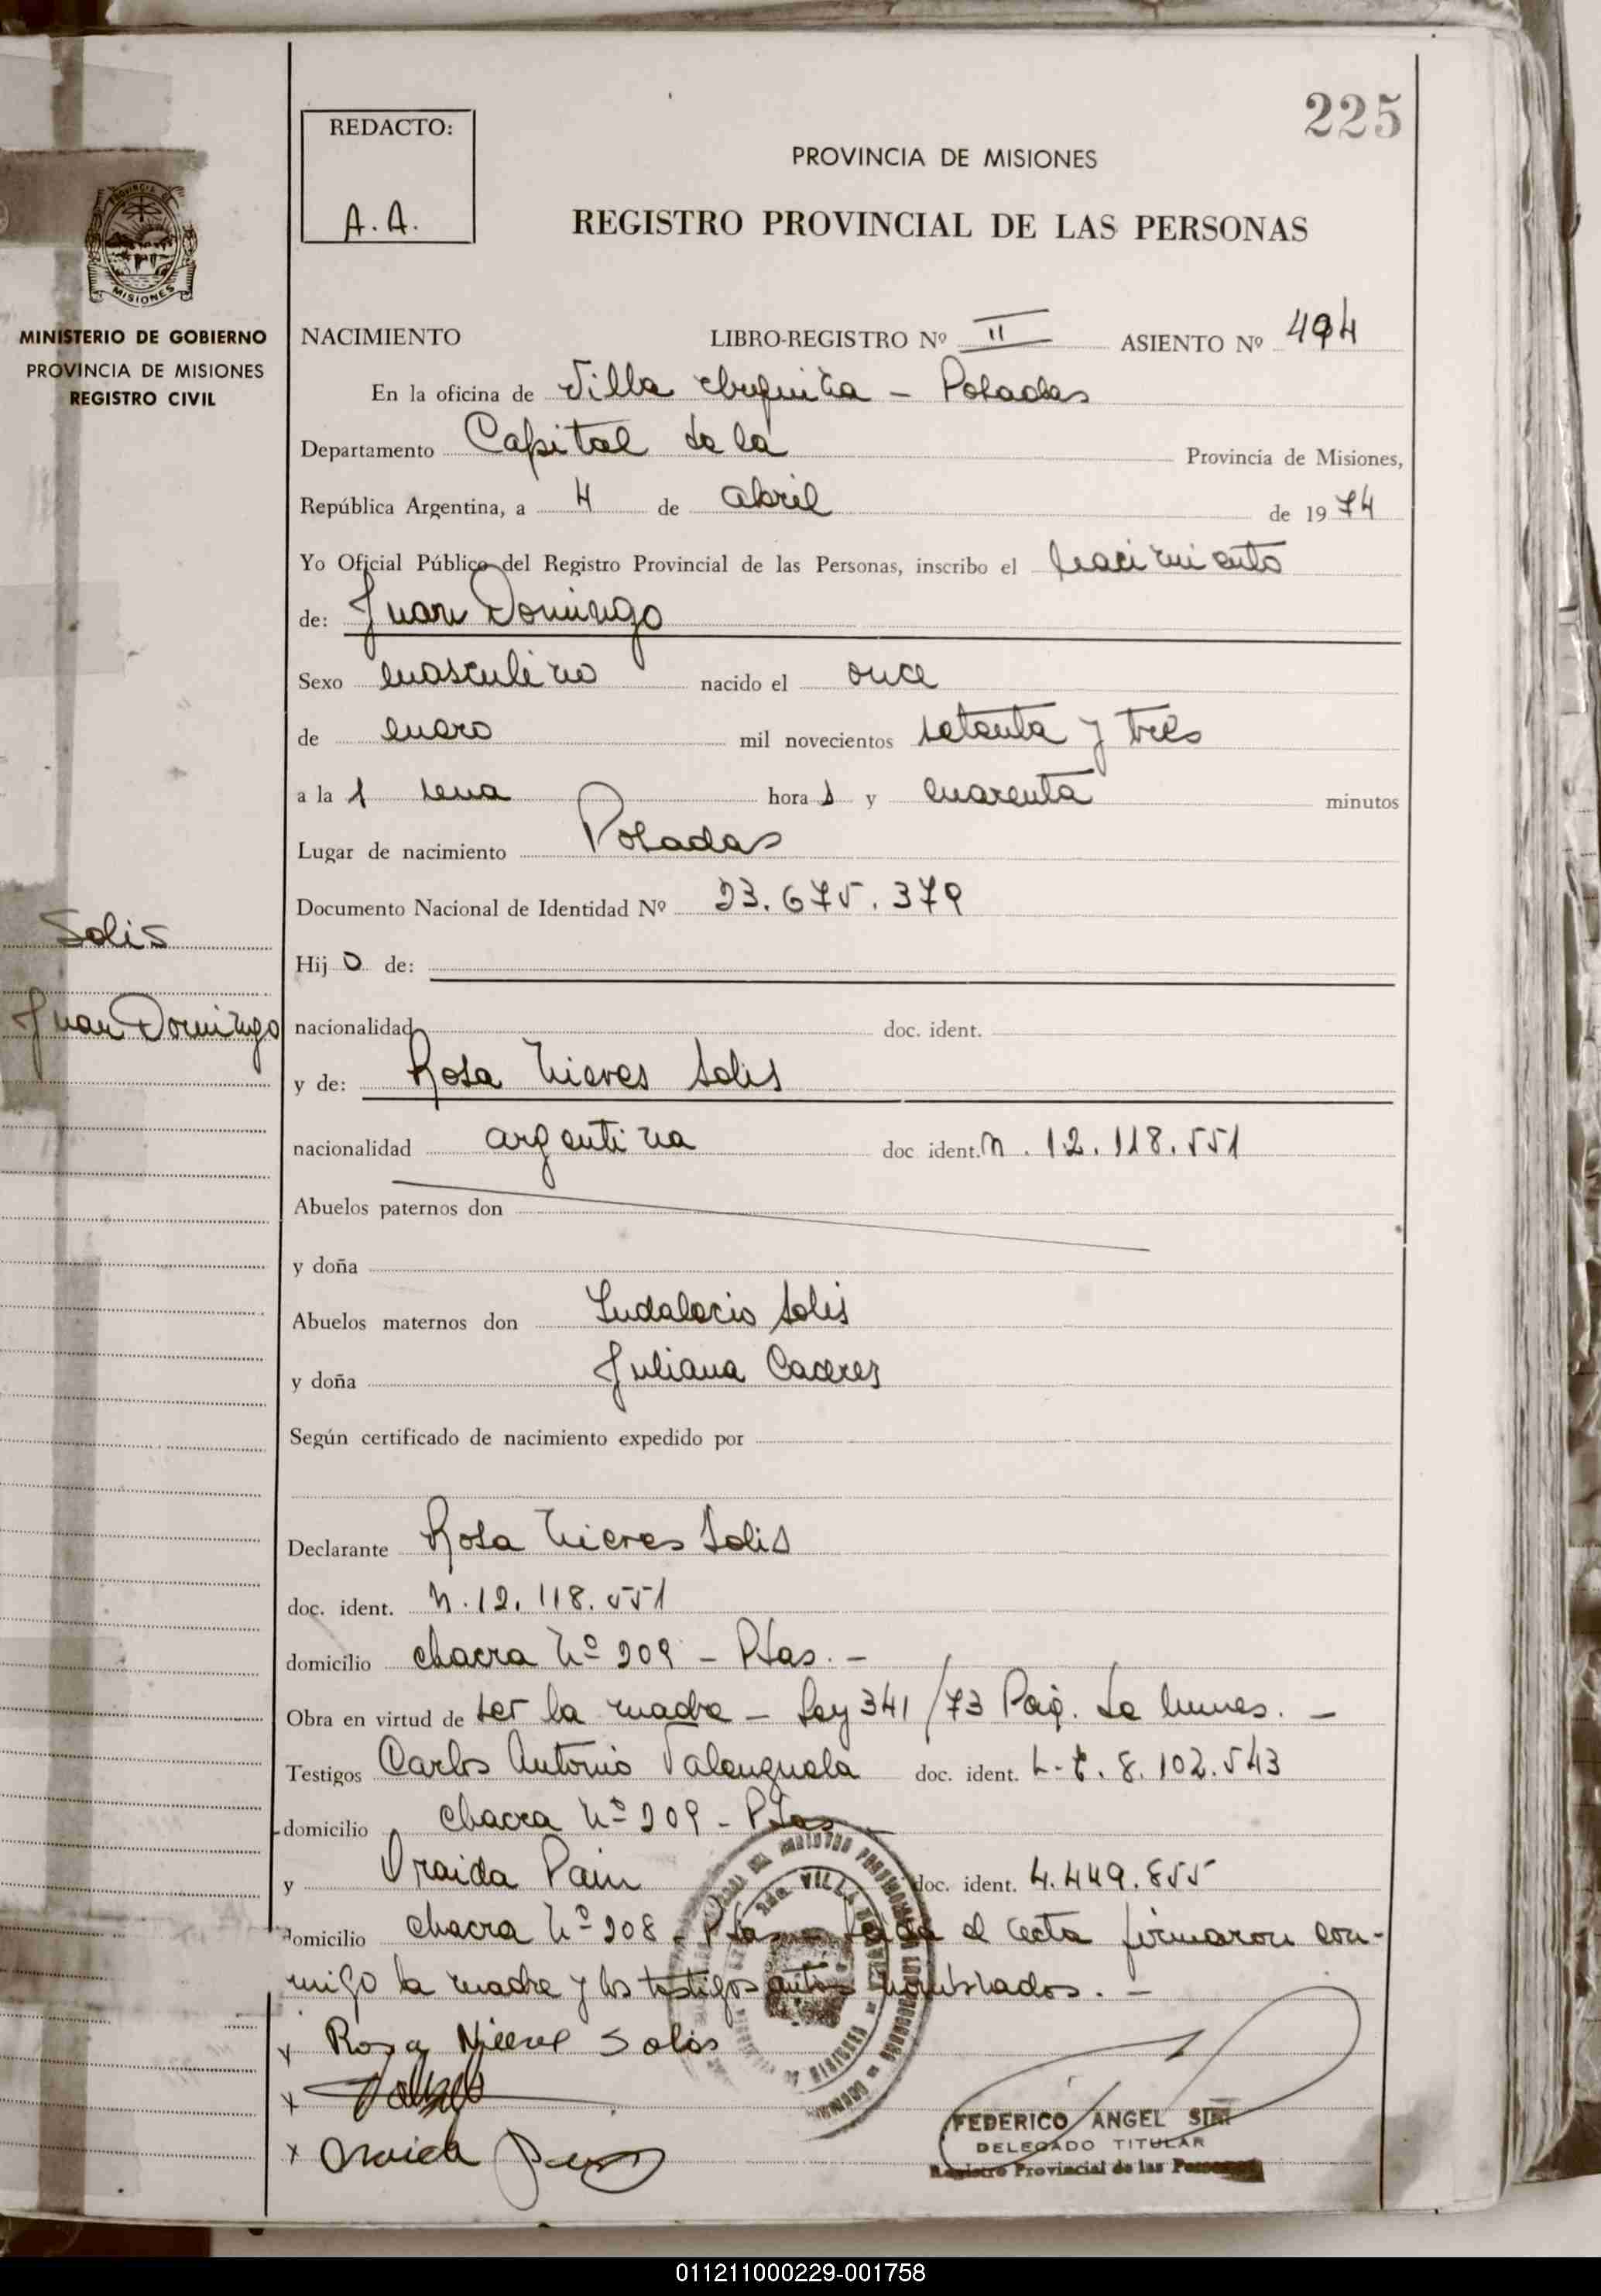 225
REDACTO:
A.A.
PROVINCIA DE MISIONES
REGISTRO PROVINCIAL DE LAS PERSONAS
PROVINCIA DE
MISIONES
MINISTERIO DE GOBIERNO
PROVINCIA DE MISIONES
REGISTRO CIVIL
NACIMIENTO LIBRO-REGISTRO Nº II ASIENTO Nº 494
En la oficina de Villa Urquiza - Posadas
Departamento Capital de la Provincia de Misiones,
República Argentina, a 4 de abril de 1974
Yo Oficial Público del Registro Provincial de las Personas, inscribo el nacimiento
de: Juan Domingo
Sexo masculino nacido el once
de enero mil novecientos setenta y tres
a la 1 una hora y cuarenta minutos
Lugar de nacimiento Posadas
Documento Nacional de Identidad Nº 23.675.379
Solis
Juan Domingo
Hij o de:
nacionalidad doc. ident.
y de: Rosa Nieves Solis
nacionalidad argentina doc ident. N. 12.118.551
Abuelos paternos don
y doña
Abuelos maternos don Indalecio Solis
y doña Juliana Caceres
Según certificado de nacimiento expedido por
Declarante Rosa Nieves Solis
doc. ident. N. 12.118.551
domicilio chacra Nº 209 - Pdas. -
Obra en virtud de ser la madre - Ley 341/73 Pcia. de Mnes. -
Testigos Carlos Antonio Valenzuela doc. ident. L.E. 8.102.543
domicilio chacra Nº 209 - Pdas -
y Oraida Paim doc. ident. 4.449.855
domicilio chacra Nº 208 - Pdas - Leida el acta firmaron con-
migo la madre y los testigos antes nombrados. -
x Rosa Nieves Solis
x
x Oraida
FEDERICO ANGEL
DELEGADO TITULAR
Registro Provincial de las Personas
011211000229-001758